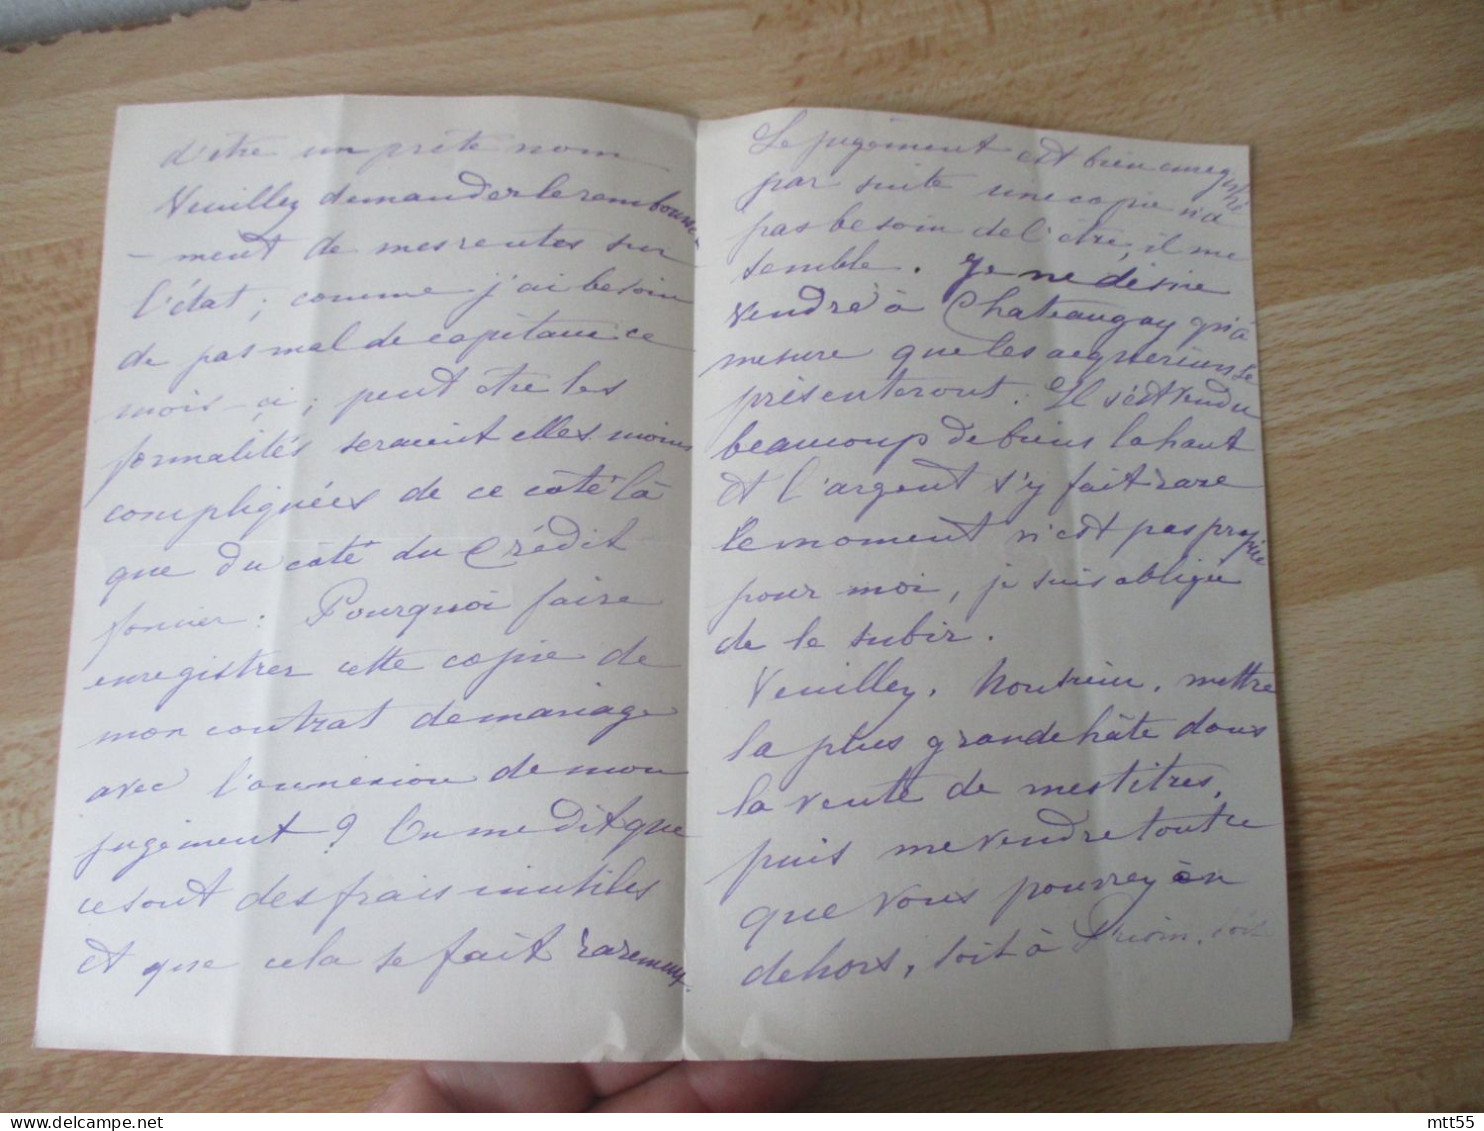 d'être un prête nom
Veuillez demander le rembourse
- ment de mes rentes sur
l'état ; comme j'ai besoin
de pas mal de capitaux ce
mois-ci ; peut être les
formalités seraient elles moins
compliquées de ce côté là
que du côté du Crédit
foncier : Pourquoi faire
enregistrer cette copie de
mon contrat de mariage
avec l'annexion de mon
jugement ? On me dit que
ce sont des frais inutiles
et que cela se fait rarement.
Le jugement est bien enregistré
par suite une copie n'a
pas besoin de l'être, il me
semble. Je ne désire
vendre à Chateaugay qu'à
mesure que les acquereurs se
présenteront. Il s'est vendu
beaucoup de biens la haut
et l'argent s'y fait rare
le moment n'est pas propice
pour moi, je suis obligée
de le subir.
Veuillez, Monsieur, mettre
la plus grande hâte dans
la vente de mes titres,
puis me vendre tout ce
que vous pourrez en
dehors, soit à Riom, soit
mtt55